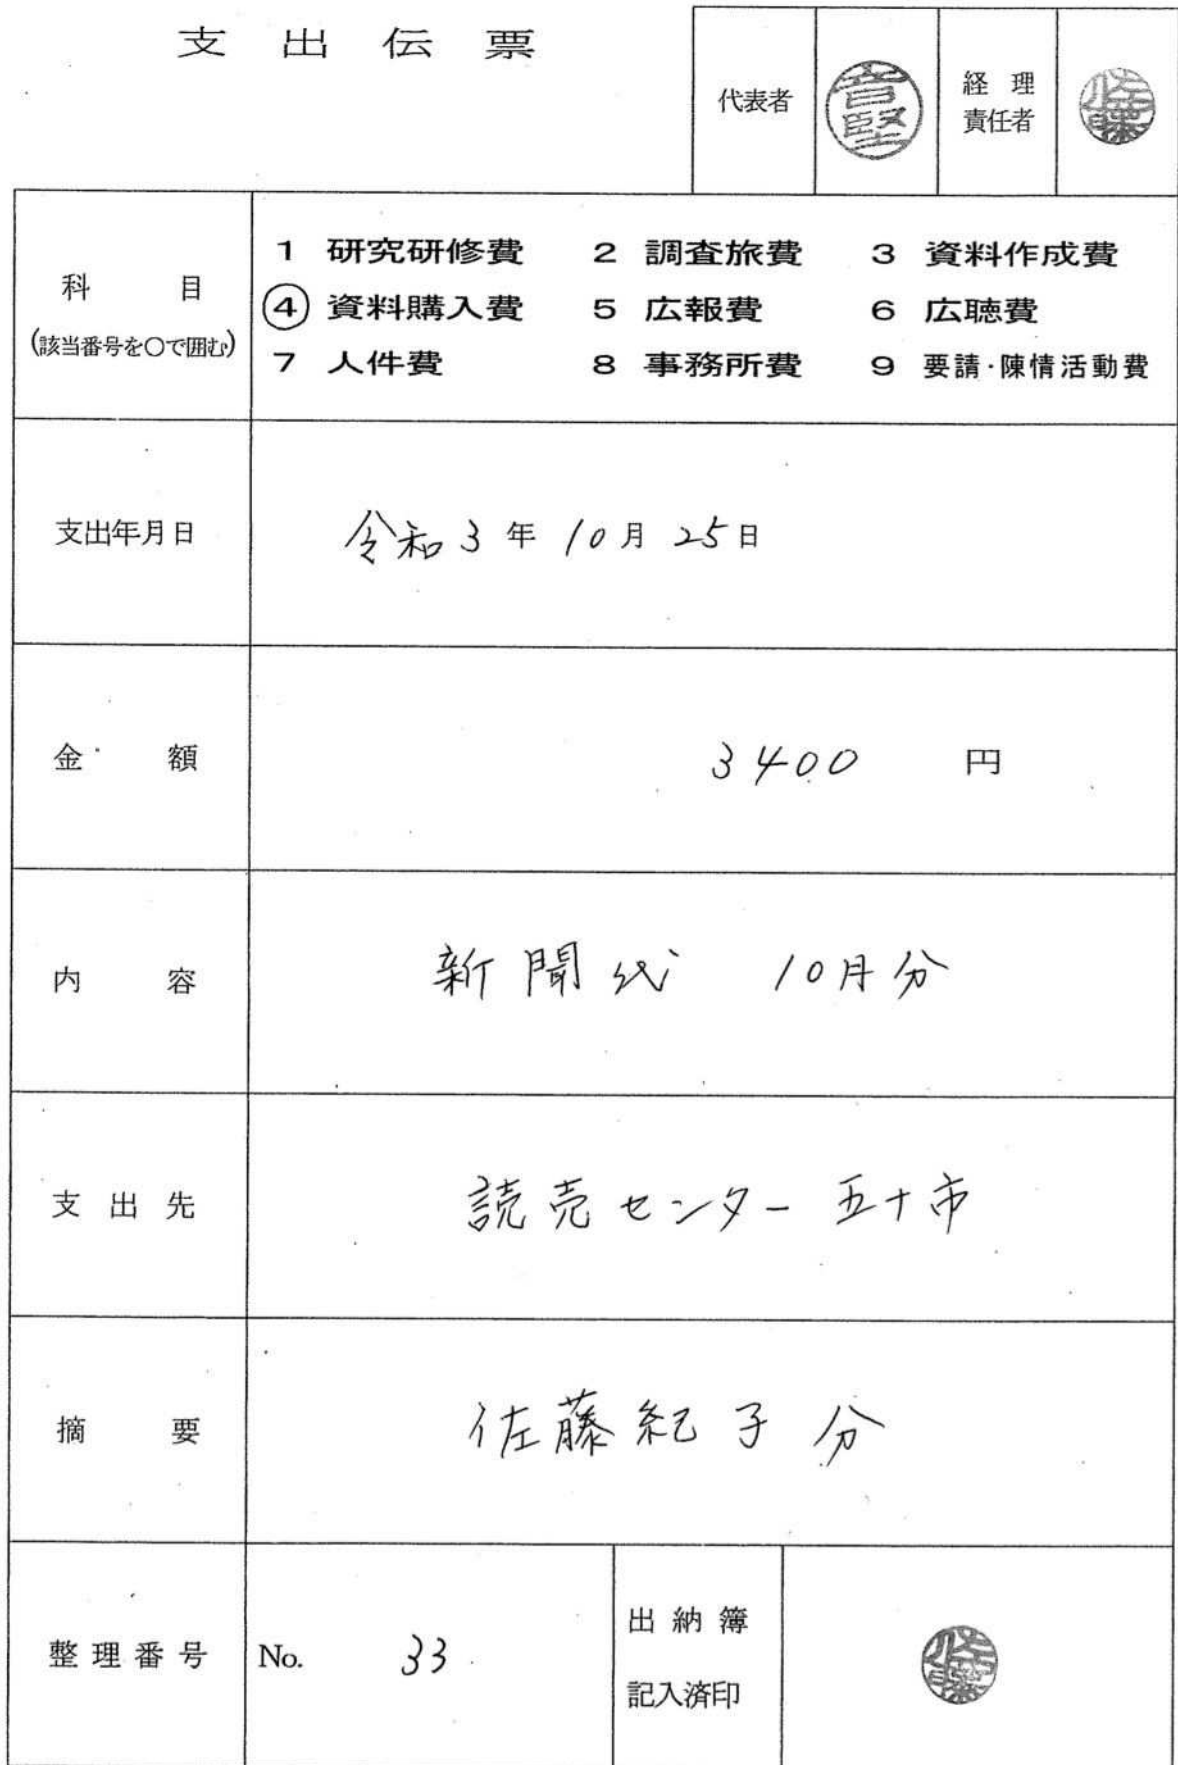 支出伝票
代表者 音堅 経理責任者 佐藤
科目
(該当番号を○で囲む)
1 研究研修費 2 調査旅費 3 資料作成費
④ 資料購入費 5 広報費 6 広聴費
7 人件費 8 事務所費 9 要請・陳情活動費
支出年月日 令和3年10月25日
金額 3400 円
内容 新聞代 10月分
支出先 読売センター五十市
摘要 佐藤紀子分
整理番号 No. 33 出納簿
記入済印 佐藤